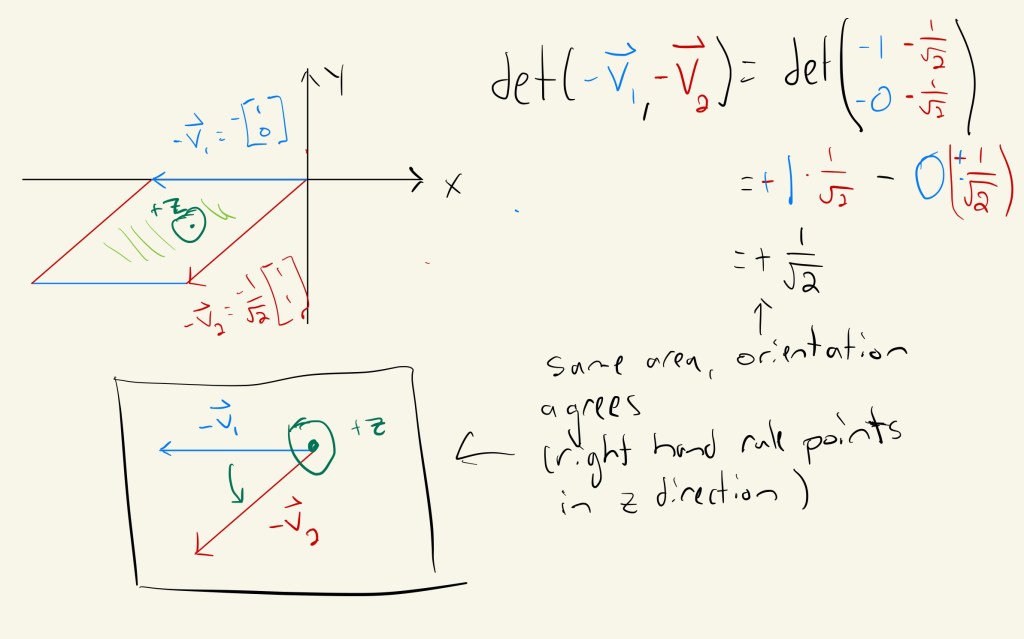 Y
-V⃗₁ = -[1 0]
X
+z
-V⃗₂ = -1/√2 [1 1]
det(-V⃗₁, -V⃗₂) = det(-1 -1/√2
-0 -1/√2)
= +1 · 1/√2 - 0(+ 1/√2)
= + 1/√2
↑
same area, orientation
agrees
(right hand rule points
in z direction)
←
-V⃗₁
+z
-V⃗₂